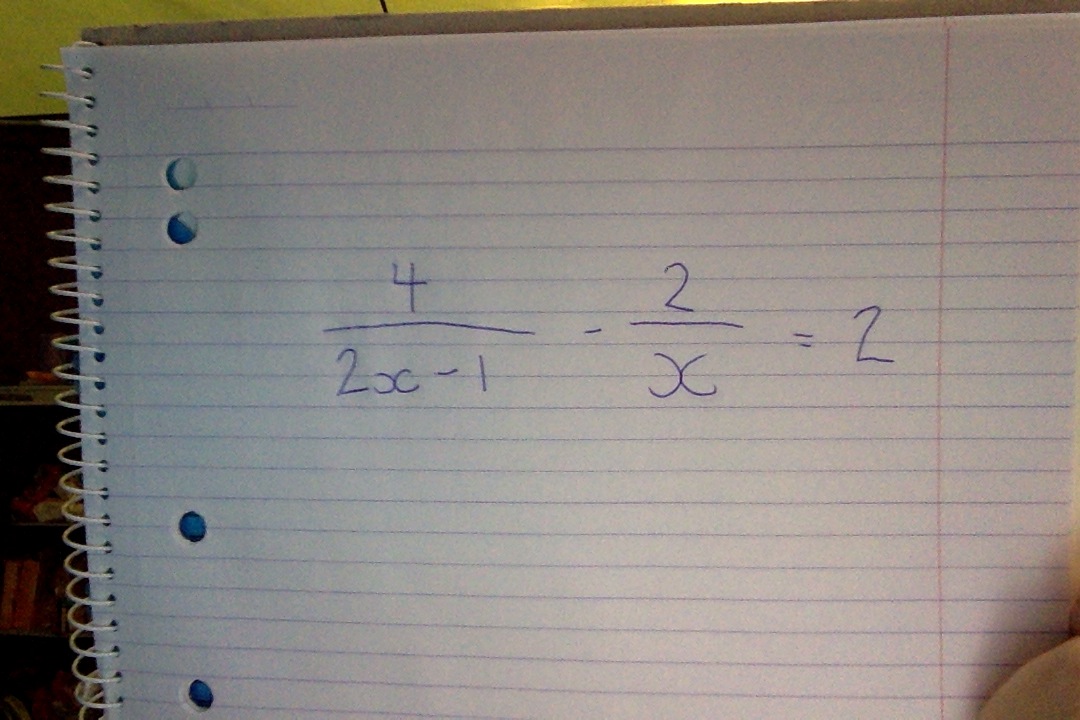 4/(2x-1) - 2/x = 2